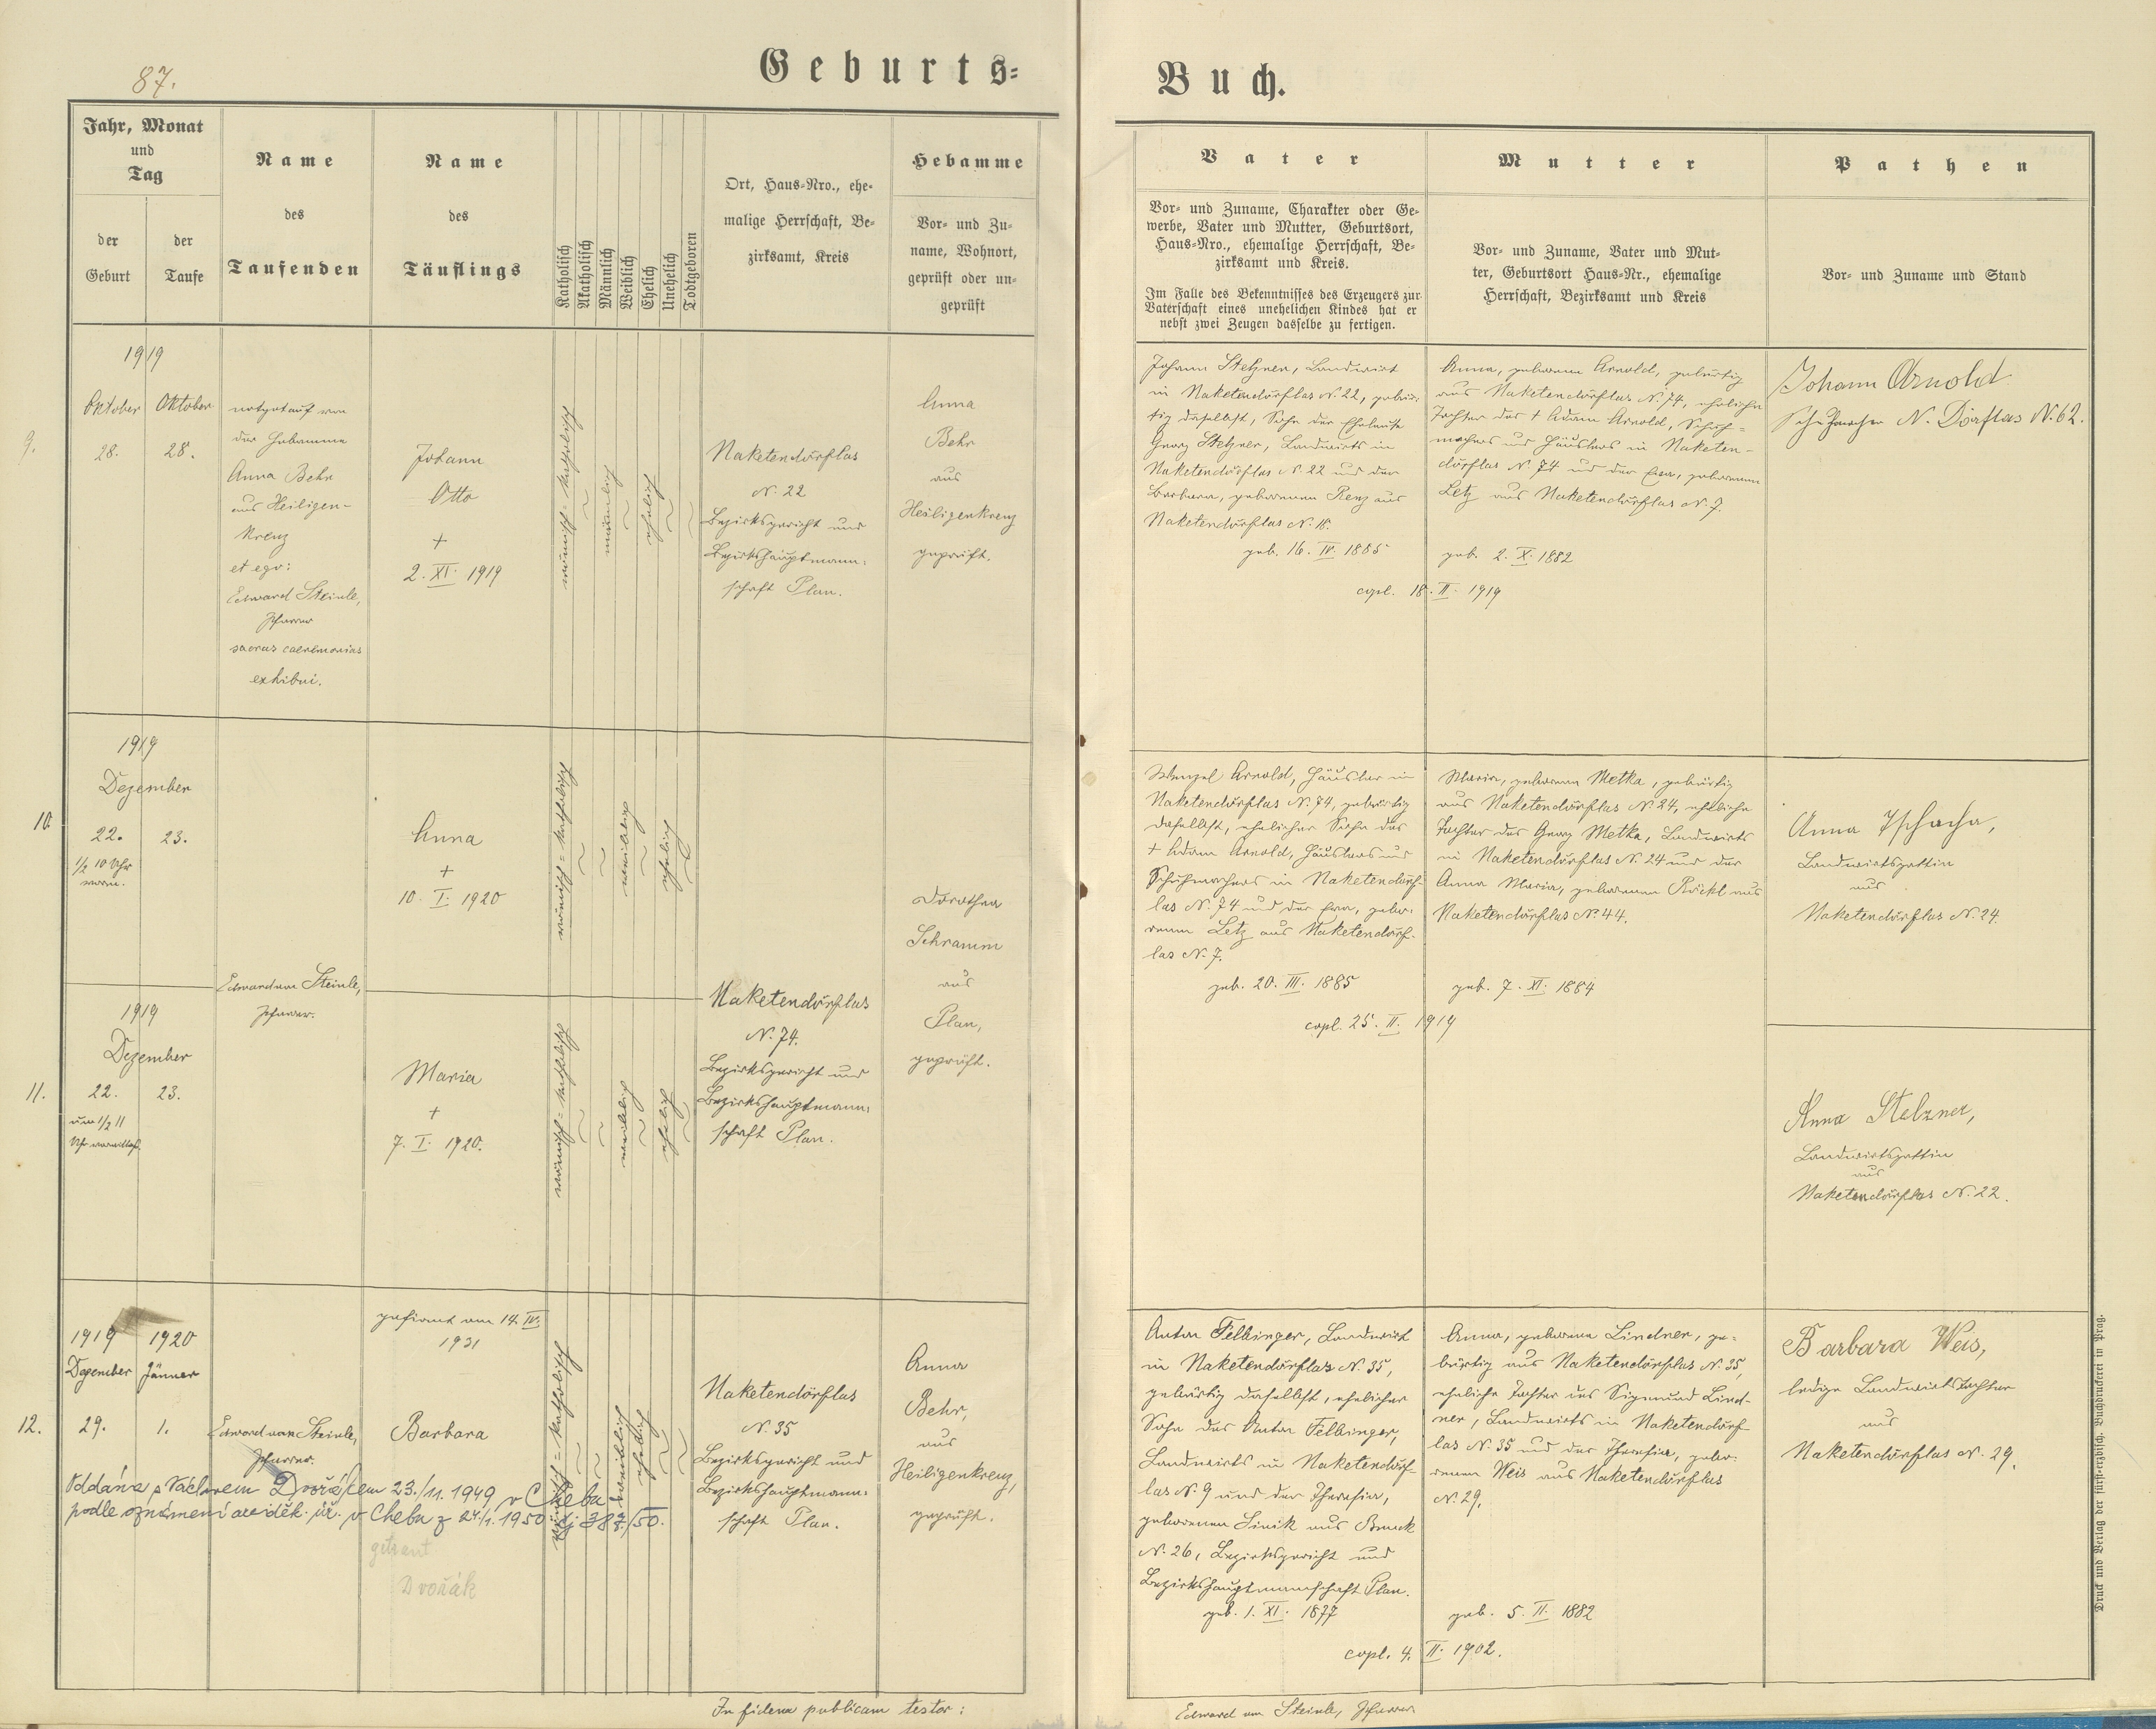 87.
Geburts=
Buch.
Jahr, Monat
und
Tag
der
Geburt
der
Taufe
Name
des
Taufenden
Name
des
Täuflings
Katholisch
Akatholisch
Männlich
Weiblich
Ehelich
Unehelich
Todtgeboren
Ort, Haus=Nro., ehe=
malige Herrschaft, Be=
zirksamt, Kreis
Hebamme
Vor= und Zu=
name, Wohnort,
geprüft oder un=
geprüft
Vater
Vor= und Zuname, Charakter oder Ge=
werbe, Vater und Mutter, Geburtsort,
Haus=Nro., ehemalige Herrschaft, Be=
zirksamt und Kreis.
Im Falle des Bekenntnisses des Erzeugers zur
Vaterschaft eines unehelichen Kindes hat er
nebst zwei Zeugen dasselbe zu fertigen.
Mutter
Vor= und Zuname, Vater und Mut=
ter, Geburtsort Haus=Nr., ehemalige
Herrschaft, Bezirksamt und Kreis
Pathen
Vor= und Zuname und Stand
9.
1919
Oktober
28.
Oktober
28.
notgetauft von
der Hebamme
Anna Behr
aus Heiligen-
kreuz
et ego:
Edward Steinle,
Pfarrer
sacras caeremonias
exhibui.
Johann
Otto
+
2. XI. 1919
römisch=katholisch
männlich
ehelich
Naketendörflas
N. 22
Bezirksgericht und
Bezirkshauptmann=
schaft Plan.
Anna
Behr
aus
Heiligenkreuz
geprüft.
Johann Stelzner, Landwirt
in Naketendörflas N. 22, gebür=
tig daselbst, Sohn der Eheleute
Georg Stelzner, Landwirts in
Naketendörflas N. 22 und der
Barbara, geborenen Renz aus
Naketendörflas N. 18.
geb. 16. IV. 1885
Anna, geborene Arnold, gebürtig
aus Naketendörflas N. 74, eheliche
Tochter des + Adam Arnold, Schuh=
machers und Häuslers in Naketen-
dörflas N. 74 und der Eva, geborenen
Letz aus Naketendörflas N. 7.
geb. 2. X. 1882
copl. 18. II. 1919
Johann Arnold
Schuhmacher N. Dörflas N. 62.
10.
1919
Dezember
22.
23.
1/2 10 Uhr
vorm.
Anna
+
10. I. 1920
römisch=katholisch
weiblich
ehelich
Wenzel Arnold, Häusler in
Naketendörflas N. 74, gebürtig
daselbst, ehelicher Sohn des
+ Adam Arnold, Häuslers und
Schuhmachers in Naketendörf-
las N. 74 und der Eva, gebo=
renen Letz aus Naketendörf-
las N. 7.
geb. 20. III. 1885
Maria, geborene Metka, gebürtig
aus Naketendörflas N. 24, eheliche
Tochter des Georg Metka, Landwirts
in Naketendörflas N. 24 und der
Anna Maria, geborenen Röckl aus
Naketendörflas N. 44.
geb. 7. XI. 1884
copl. 25. II. 1919
Anna Tschacha,
Landwirtsgattin
aus
Naketendörflas N. 24.
Edward von Steinle,
Pfarrer.
Naketendörflas
N. 74.
Bezirksgericht und
Bezirkshauptmann=
schaft Plan.
Dorothea
Schramm
aus
Plan,
geprüft.
11.
1919
Dezember
22.
23.
um 1/2 11
Uhr vormittags.
Maria
+
7. I. 1920.
römisch=katholisch
weiblich
ehelich
Anna Stelzner,
Landwirtsgattin
aus
Naketendörflas N. 22.
12.
1919
Dezember
29.
1920
Jänner
1.
Edward von Steinle,
Pfarrer.
gefirmt am 14. IV.
1931
Barbara
römisch=katholisch
weiblich
ehelich
Naketendörflas
N. 35
Bezirksgericht und
Bezirkshauptmann=
schaft Plan.
Anna
Behr,
aus
Heiligenkreuz,
geprüft.
Anton Felbinger, Landwirt
in Naketendörflas N. 35,
gebürtig daselbst, ehelicher
Sohn des Anton Felbinger,
Landwirts in Naketendörf-
las N. 9 und der Theresia,
geborenen Sinik aus Bruck
N. 26, Bezirksgericht und
Bezirkshauptmannschaft Plan.
geb. 1. XI. 1877
Anna, geborene Lindner, ge=
bürtig aus Naketendörflas N. 35,
eheliche Tochter des Sigmund Lind-
ner, Landwirts in Naketendörf-
las N. 35 und der Theresia, gebo=
renen Weis aus Naketendörflas
N. 29.
geb. 5. II. 1882
copl. 4. II. 1902.
Barbara Weis,
ledige Landwirtstochter
aus
Naketendörflas N. 29.
Oddána s Václavem Dvořákem 23./11. 1949 v Chebu
podle oznámení arciděk. úř. v Chebu z 24./1. 1950 čj 387/50.
getraut
Dvořák
In fidem publicam testor:
Edward von Steinle, Pfarrer
Druck und Verlag der fürst=erzbisch. Buchdruckerei in Prag.